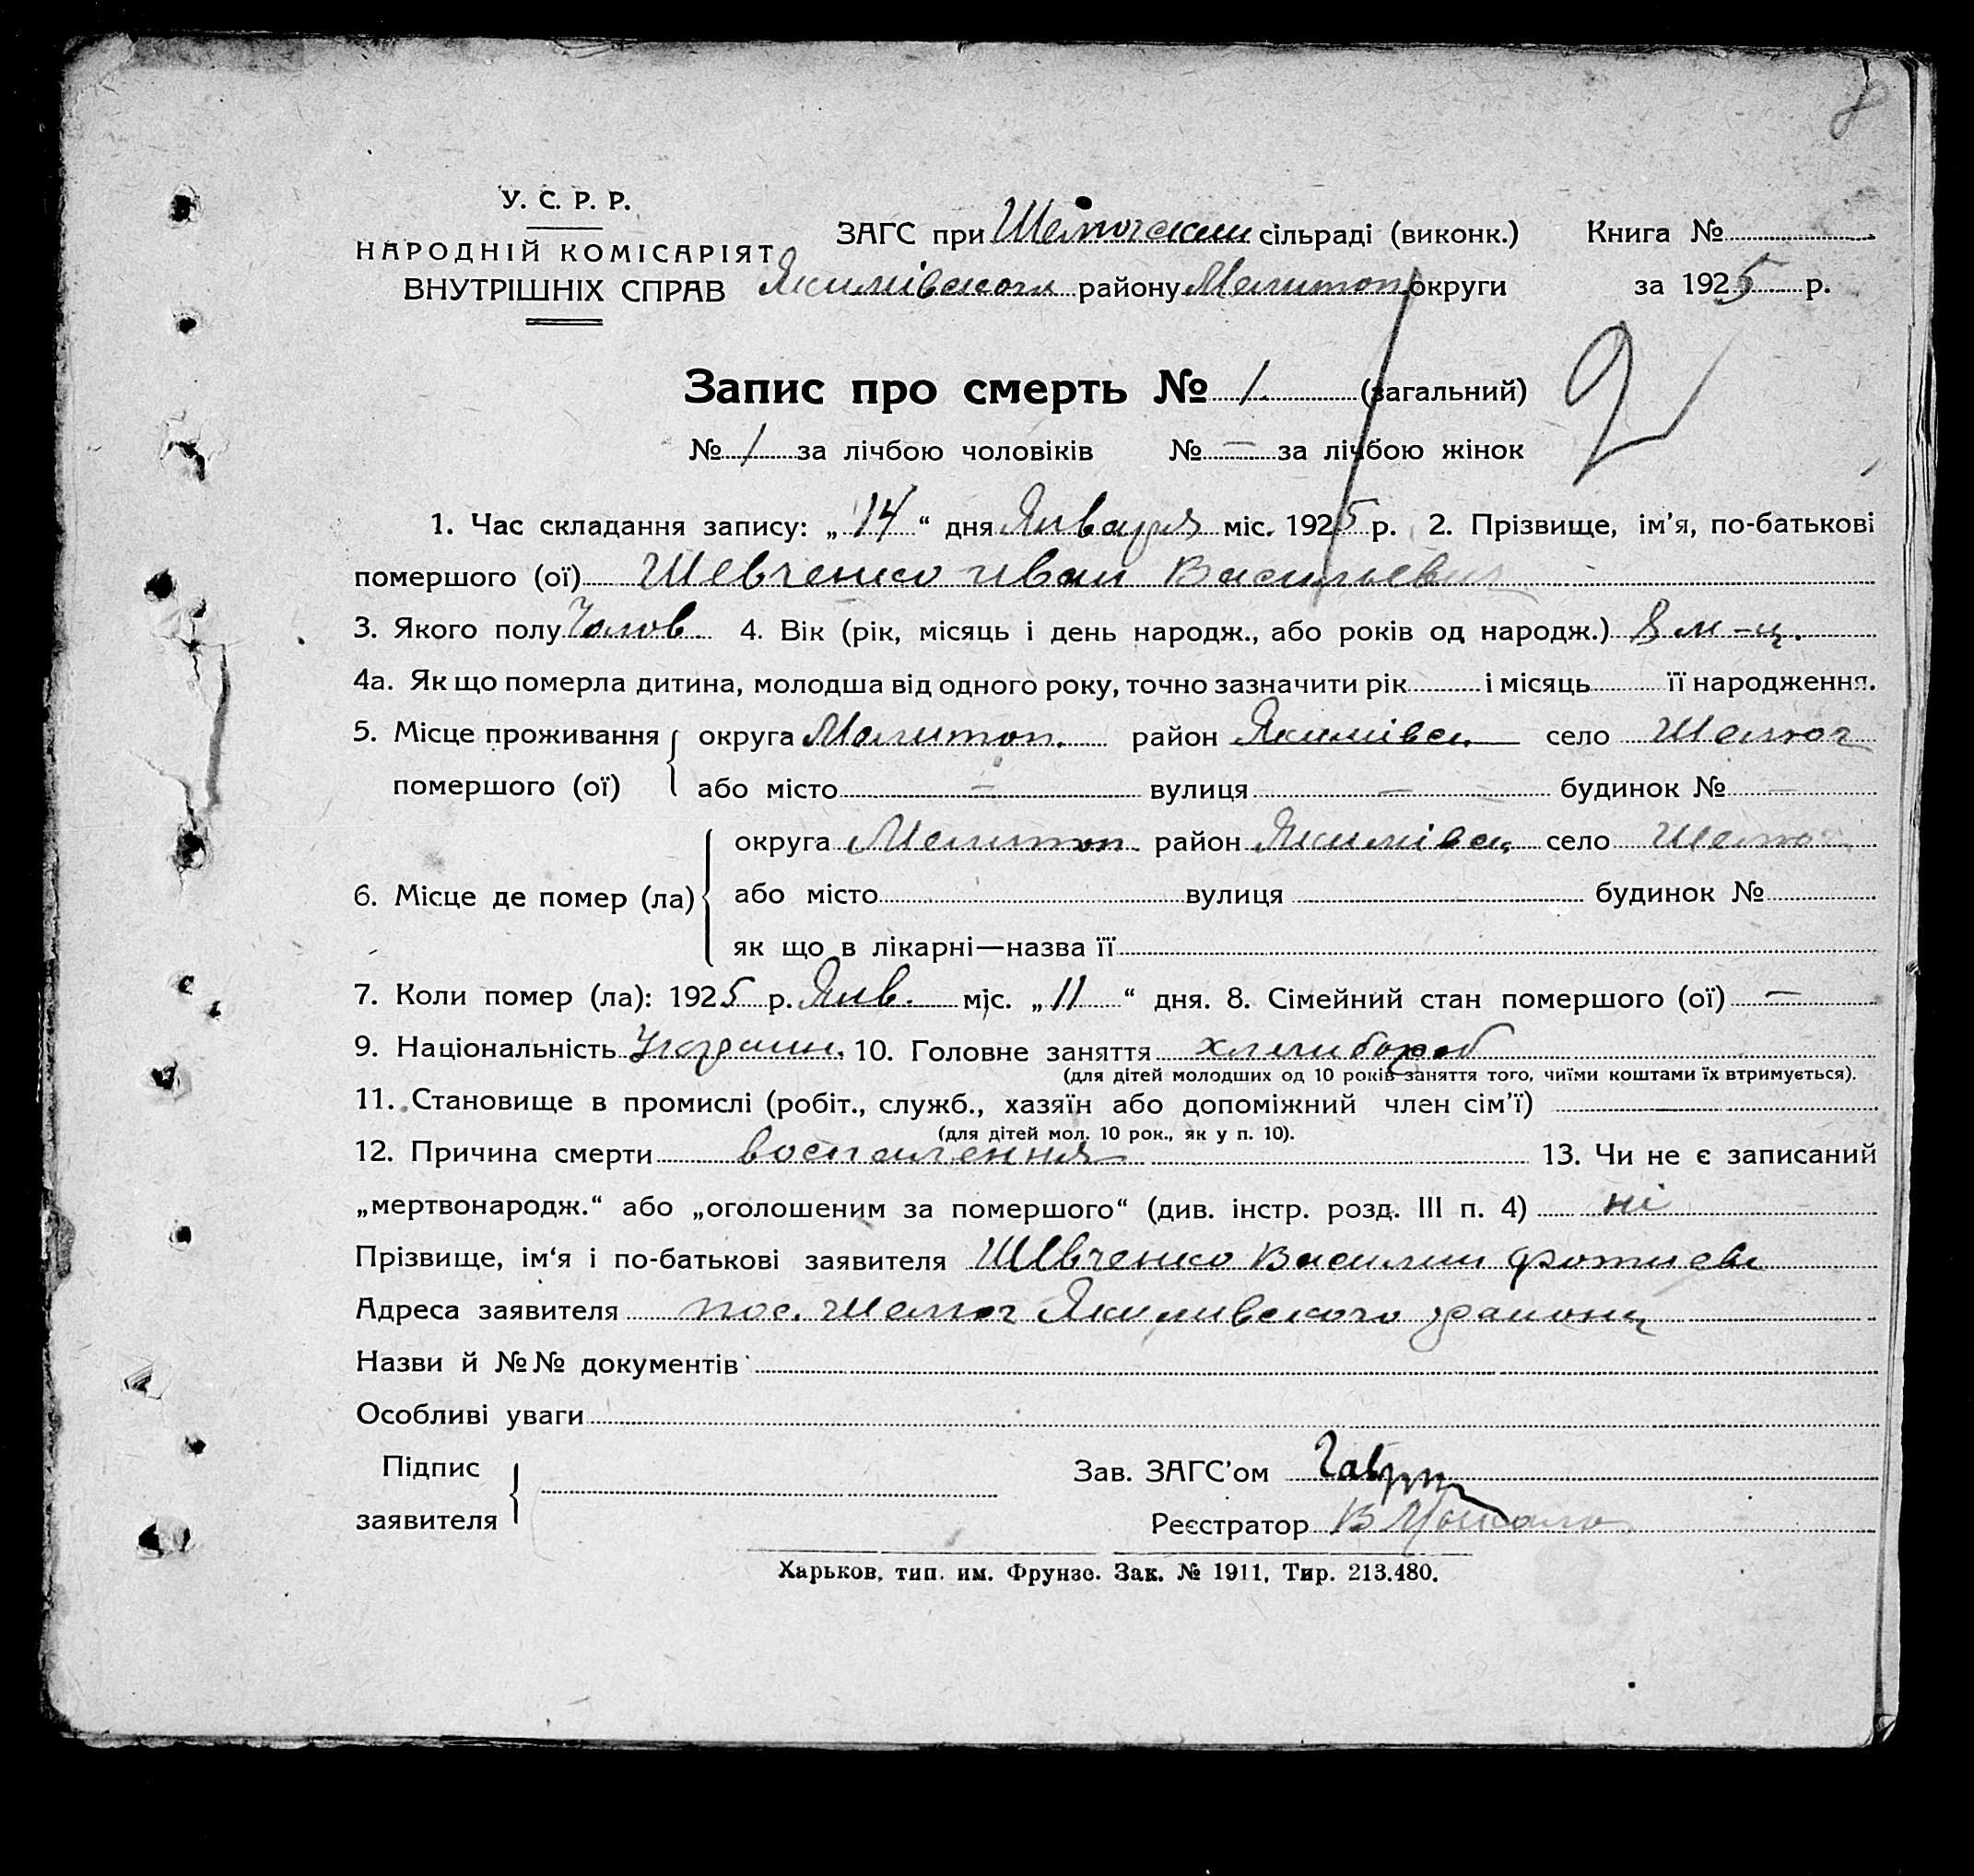 8
У. С. Р. Р.
НАРОДНІЙ КОМІСАРІЯТ
ВНУТРІШНІХ СПРАВ
ЗАГС при сільраді (виконк.) Книга №
Якимівского району Мелитоп. округи за 1925 р.
Запис про смерть № 1. (загальний)
2
№ 1 за лічбою чоловіків № — за лічбою жінок
1. Час складання запису: „14“ дня Января міс. 1925 р. 2. Прізвище, ім’я, по-батькові
помершого (ої) Шевченко Иван Васильевич
3. Якого полу Чолов. 4. Вік (рік, місяць і день народж., або років од народж.) 8 м-ц.
4а. Як що померла дитина, молодша від одного року, точно зазначити рік і місяць її народження.
5. Місце проживання округа Мелитоп. район Якимівск. село Шелюг
помершого (ої) або місто — вулиця — будинок № —
округа Мелитоп. район Якимівск. село Шелюг
6. Місце де помер (ла) або місто вулиця будинок №
як що в лікарні—назва її
7. Коли помер (ла): 1925 р. Янв. міс. „11“ дня. 8. Сімейний стан помершого (ої) —
9. Національність Украин. 10. Головне заняття хлибороб
(для дітей молодших од 10 років заняття того, чиїми коштами їх втримується).
11. Становище в промислі (робіт., служб., хазяїн або допоміжний член сім’ї)
(для дітей мол. 10 рок., як у п. 10).
12. Причина смерти воспалення 13. Чи не є записаний
„мертвонародж.“ або „оголошеним за помершого“ (див. інстр. розд. III п. 4) ні
Прізвище, ім‘я і по-батькові заявителя Шевченко Василий Фотиев
Адреса заявителя пос. Шелюг Якимивского району
Назви й №№ документів
Особливі уваги
Підпис
заявителя
Зав. ЗАГС’ом
Реєстратор
Харьков, тип. им. Фрунзе. Зак. № 1911, Тир. 213.480.